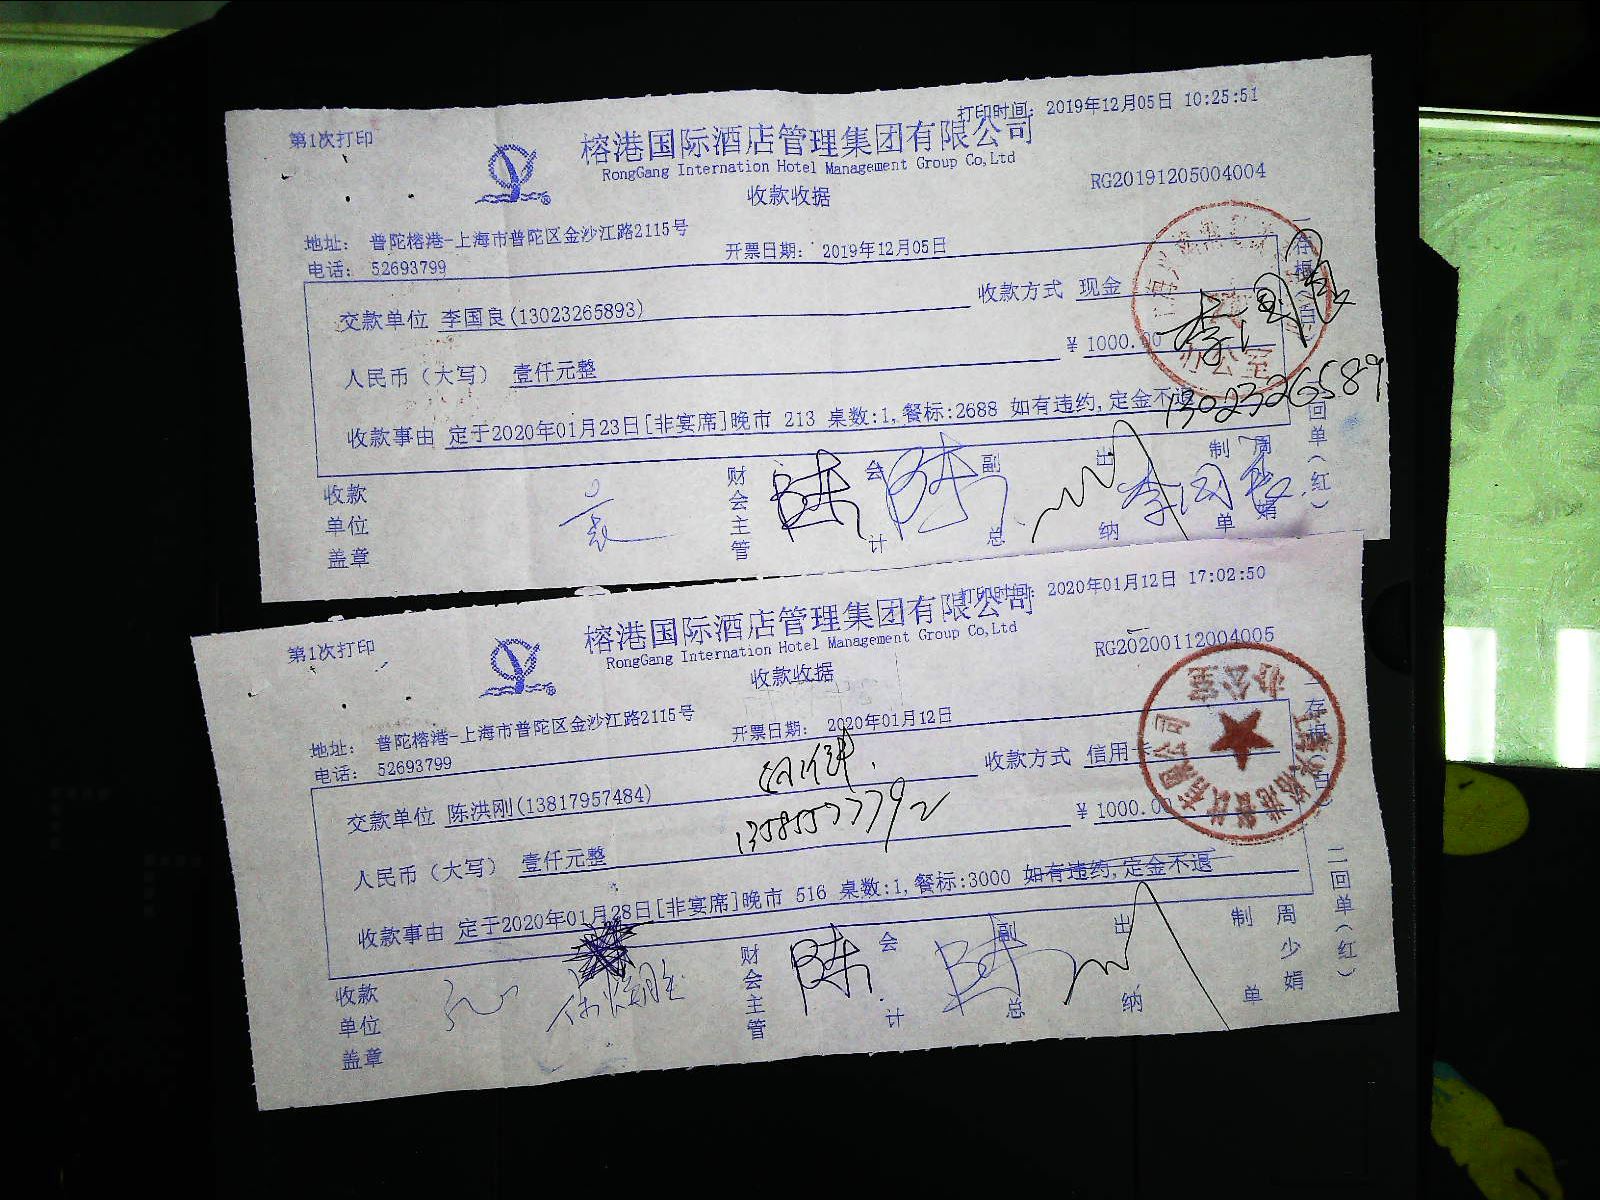 第1次打印
打印时间: 2019年12月05日 10:25:51
榕港国际酒店管理集团有限公司
RongGang International Hotel Management Group Co,Ltd
收款收据
RG20191205004004
地址: 普陀榕港-上海市普陀区金沙江路2115号
电话: 52693799
开票日期: 2019年12月05日
交款单位 李国良(13023265893)
收款方式 现金
人民币（大写） 壹仟元整
¥ 1000.00
收款事由 定于2020年01月23日[非宴席]晚市 213 桌数:1,餐标:2688 如有违约,定金不退
办公室
1302326589
收款单位盖章
财会主管
会计
副总
出纳
制单
周 娟
二回单(红)
第1次打印
打印时间: 2020年01月12日 17:02:50
榕港国际酒店管理集团有限公司
RongGang International Hotel Management Group Co,Ltd
收款收据
RG20200112004005
地址: 普陀榕港-上海市普陀区金沙江路2115号
电话: 52693799
开票日期: 2020年01月12日
交款单位 陈洪刚(13817957484)
收款方式 信用卡
人民币（大写） 壹仟元整
¥ 1000.00
收款事由 定于2020年01月28日[非宴席]晚市 516 桌数:1,餐标:3000 如有违约,定金不退
办公室
收款单位盖章
财会主管
会计
副总
出纳
制单
周少娟
二回单(红)